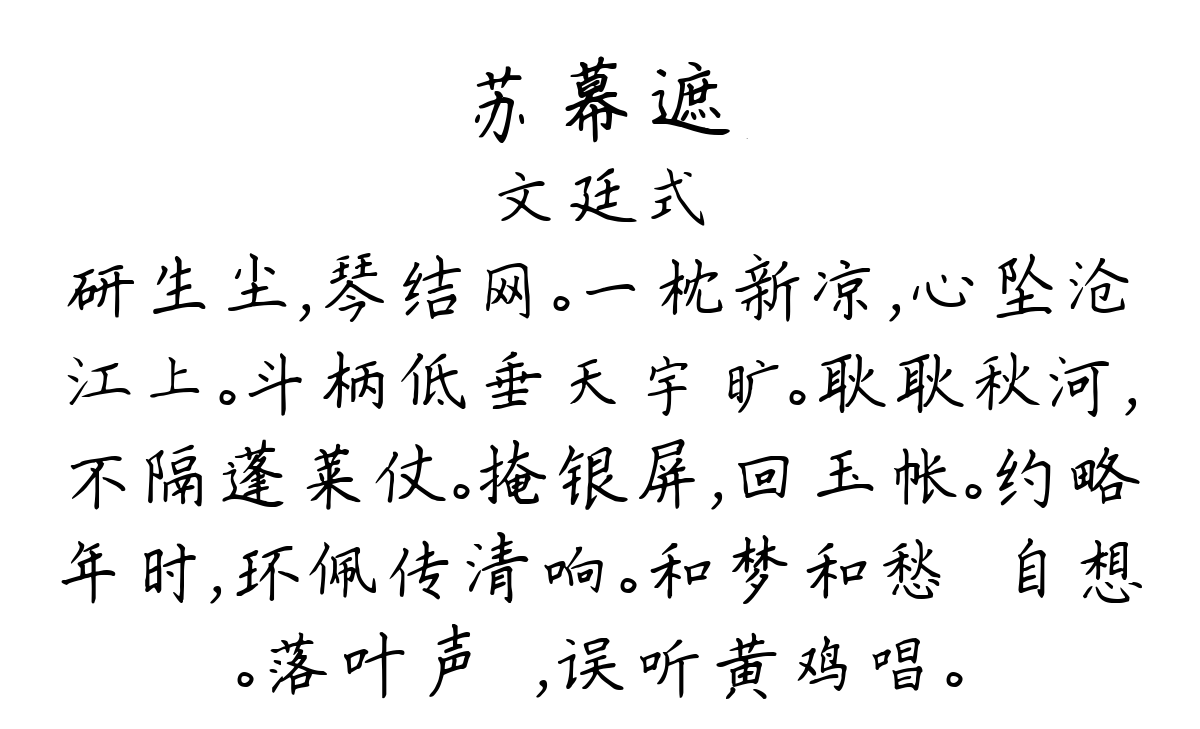 苏幕遮
文廷式
研生尘,琴结网。一枕新凉,心坠沧
江上。斗柄低垂天宇旷。耿耿秋河,
不隔蓬莱仗。掩银屏,回玉帐。约略
年时,环佩传清响。和梦和愁 自想
。落叶声 ,误听黄鸡唱。